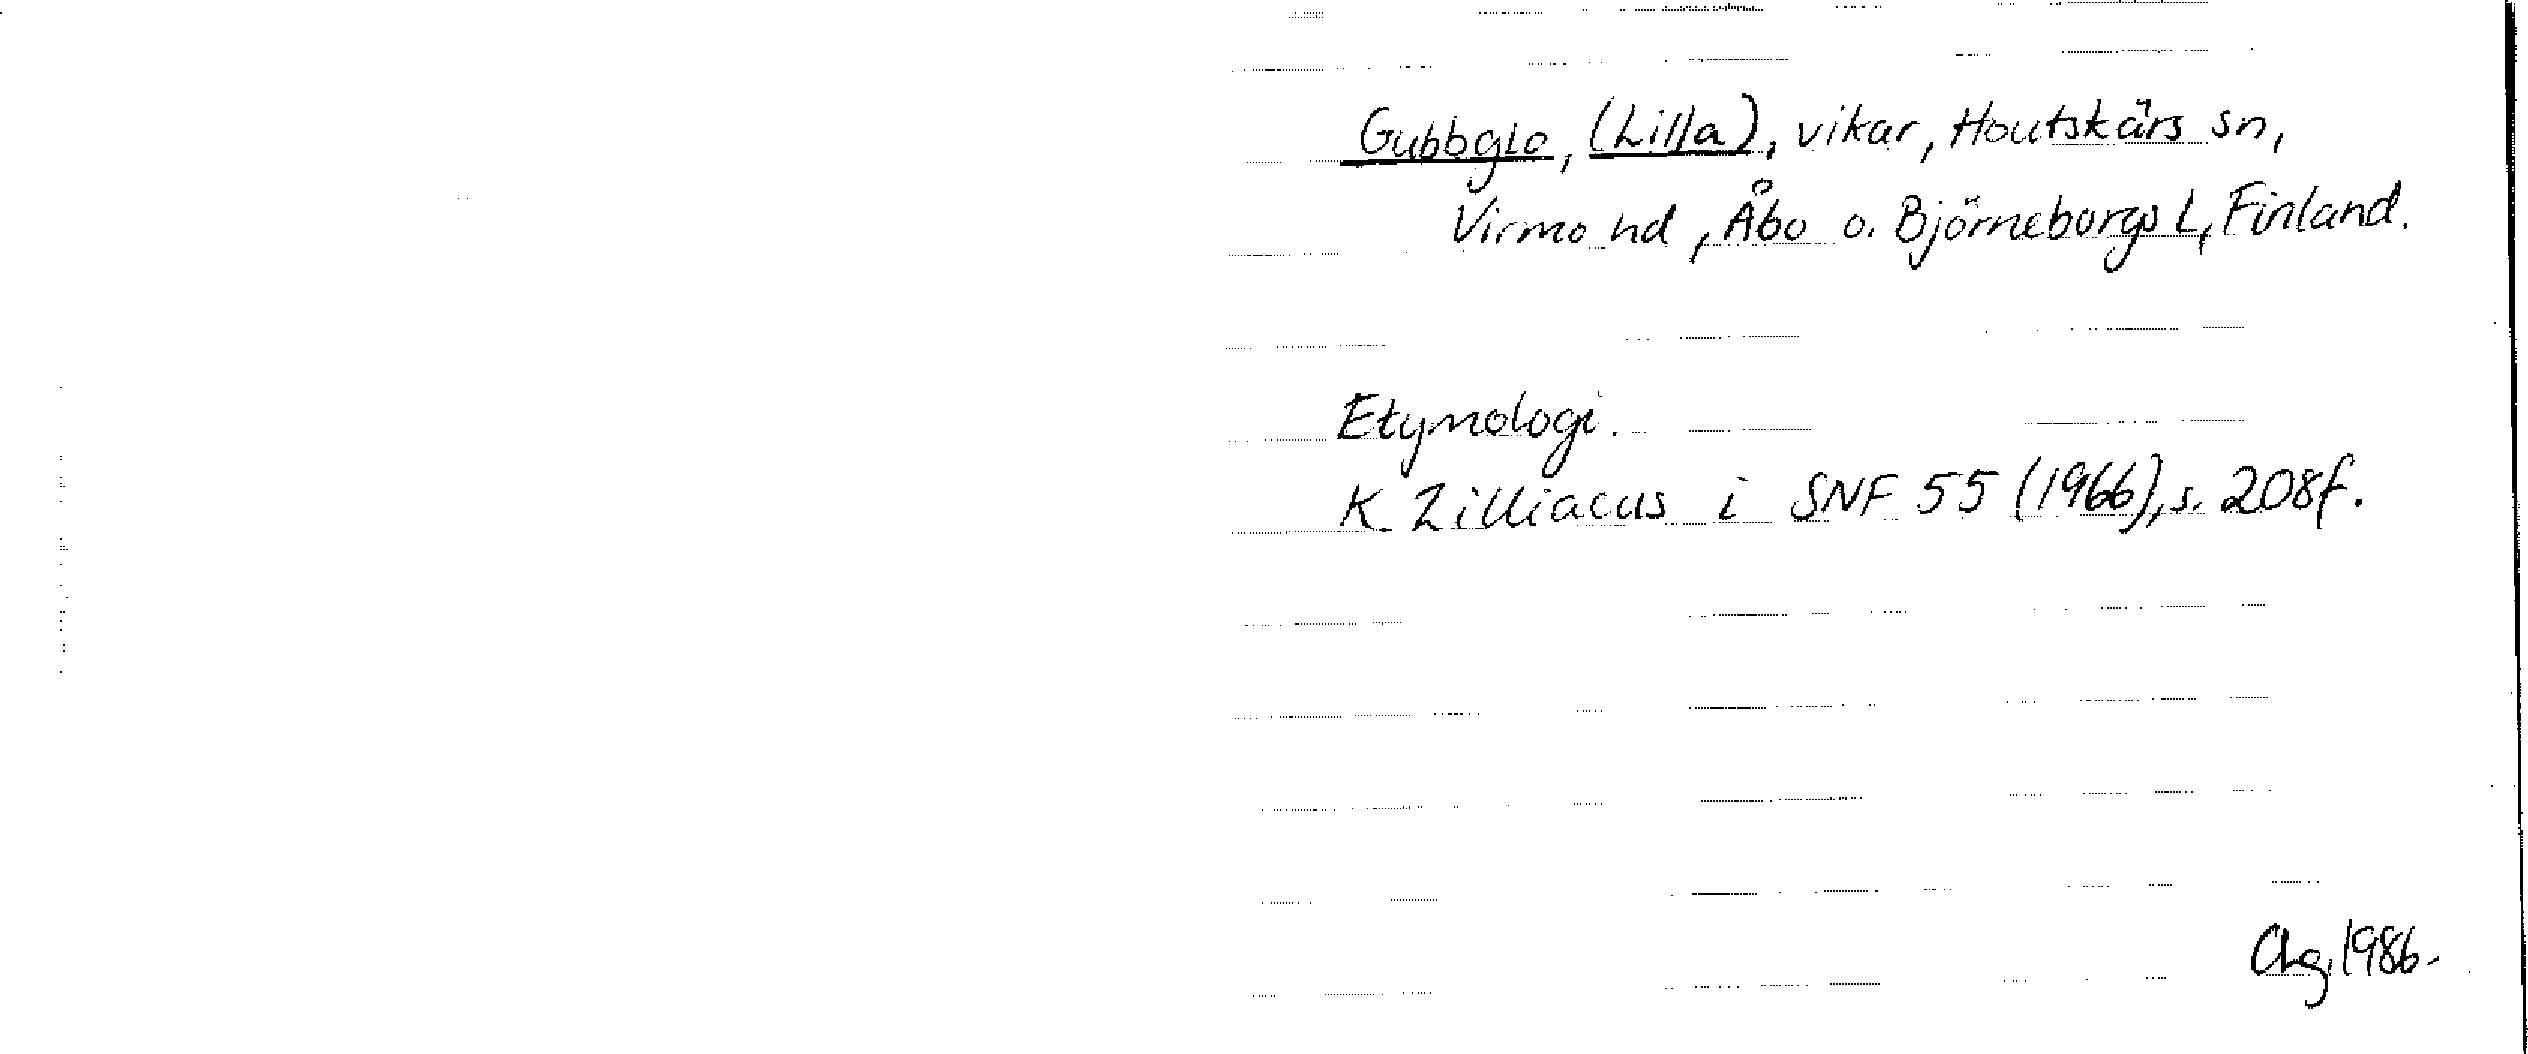 Gubbglo, (Lilla), vikar, Houtskärs sn,
Virmo hd, Åbo o. Björneborgs L, Finland.
Etymologi.
K. Zilliacus i SNF 55 (1966), s. 208f.
1986.